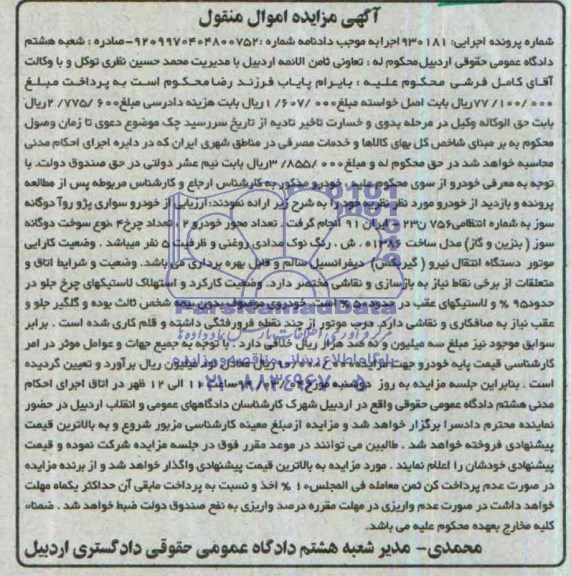 آگهی مزایده اموال منقول
شماره پرونده اجرایی: ۹۳۰۱۸۱ اجرا به موجب دادنامه شماره: ۹۲۰۹۹۷۰۴۰۴۸۰۰۷۵۲-صادره: شعبه هشتم
دادگاه عمومی حقوقی اردبیل محکوم له: تعاونی ثامن الائمه اردبیل با مدیریت محمد حسین نظری توکل و با وکالت
آقای کامل فرشی محکوم علیه: بایرام پایاب فرزند رضا محکوم است به پرداخت مبلغ
۷۷/۱۰۰/۰۰۰ریال بابت اصل خواسته مبلغ۱/۶۰۷/۰۰۰ریال بابت هزینه دادرسی مبلغ۲/۷۷۵/۶۰۰ریال
بابت حق الوکاله وکیل در مرحله بدوی و خسارت تاخیر تادیه از تاریخ سررسید چک موضوع دعوی تا زمان وصول
محکوم به بر مبنای شاخص کل بهای کالاها و خدمات مصرفی در مناطق شهری ایران که در دایره اجرای احکام مدنی
محاسبه خواهد شد در حق محکوم له و مبلغ۳/۸۵۵/۰۰۰ریال بابت نیم عشر دولتی در حق صندوق دولت. با
توجه به معرفی خودرو از سوی محکوم علیه، خودرو مذکور به کارشناس ارجاع و کارشناس مربوطه پس از مطالعه
پرونده و بازدید از خودرو مورد نظر نظریه خود را به شرح زیر ارائه نمودند: ارزیابی از خودرو سواری پژو روآ دوگانه
سوز به شماره انتظامی۷۵۶ن۲۳ - ایران ۹۱ انجام گرفت. تعداد محور خودرو ۲، تعداد چرخ۴ ،نوع سوخت دوگانه
سوز (بنزین و گاز) مدل ساخت ۱۳۸۶ه. ش، رنگ نوک مدادی روغنی و ظرفیت ۵ نفر میباشد. وضعیت کارایی
موتور دستگاه انتقال نیرو (گیربکس) دیفرانسیل سالم و قابل بهره برداری می باشد. وضعیت و شرایط اتاق و
متعلقات از برخی نقاط نیاز به بازسازی و نقاشی مختصر دارد. وضعیت کارکرد و استهلاک لاستیکهای چرخ جلو در
حدود۹۵ % و لاستیکهای عقب در حدود۵۰ % است. خودروی موصوف بدون بیمه شخص ثالث بوده و گلگیر جلو و
عقب نیاز به صافکاری و نقاشی دارد. درب موتور از چند نقطه فرورفتگی داشته و قلم کاری شده است. برابر
سوابق موجود نیز مبلغ سه میلیون و نه صد هزار ریال خلافی دارد. با توجه به جمیع جهات و عوامل موثر در امر
کارشناسی قیمت پایه خودرو جهت مزایده ریال معادل نود میلیون ریال برآورد و تعیین گردیده
است. بنابراین جلسه مزایده به روز دوشنبه مورخ ساعت ۱۱ الی ۱۲ ظهر در اتاق اجرای احکام
مدنی هشتم دادگاه عمومی حقوقی واقع در اردبیل شهرک کارشناسان دادگاههای عمومی و انقلاب اردبیل در حضور
نماینده محترم دادسرا برگزار خواهد شد و مزایده ازمبلغ معینه کارشناسی مزبور شروع و به بالاترین قیمت
پیشنهادی فروخته خواهد شد. طالبین می توانند در موعد مقرر فوق در جلسه مزایده شرکت نموده و قیمت
پیشنهادی خودشان را اعلام نمایند. مورد مزایده به بالاترین قیمت پیشنهادی واگذار خواهد شد و از برنده مزایده
در صورت عدم پرداخت کل ثمن معامله فی المجلس۱۰ % اخذ و نسبت به پرداخت مابقی آن حداکثر یکماه مهلت
خواهد داشت در صورت عدم واریزی در مهلت مقرره درصد واریزی به نفع صندوق دولت ضبط خواهد شد. ضمنا،
کلیه مخارج بعهده محکوم علیه می باشد.
محمدی- مدیر شعبه هشتم دادگاه عمومی حقوقی دادگستری اردبیل
ParsNamadData